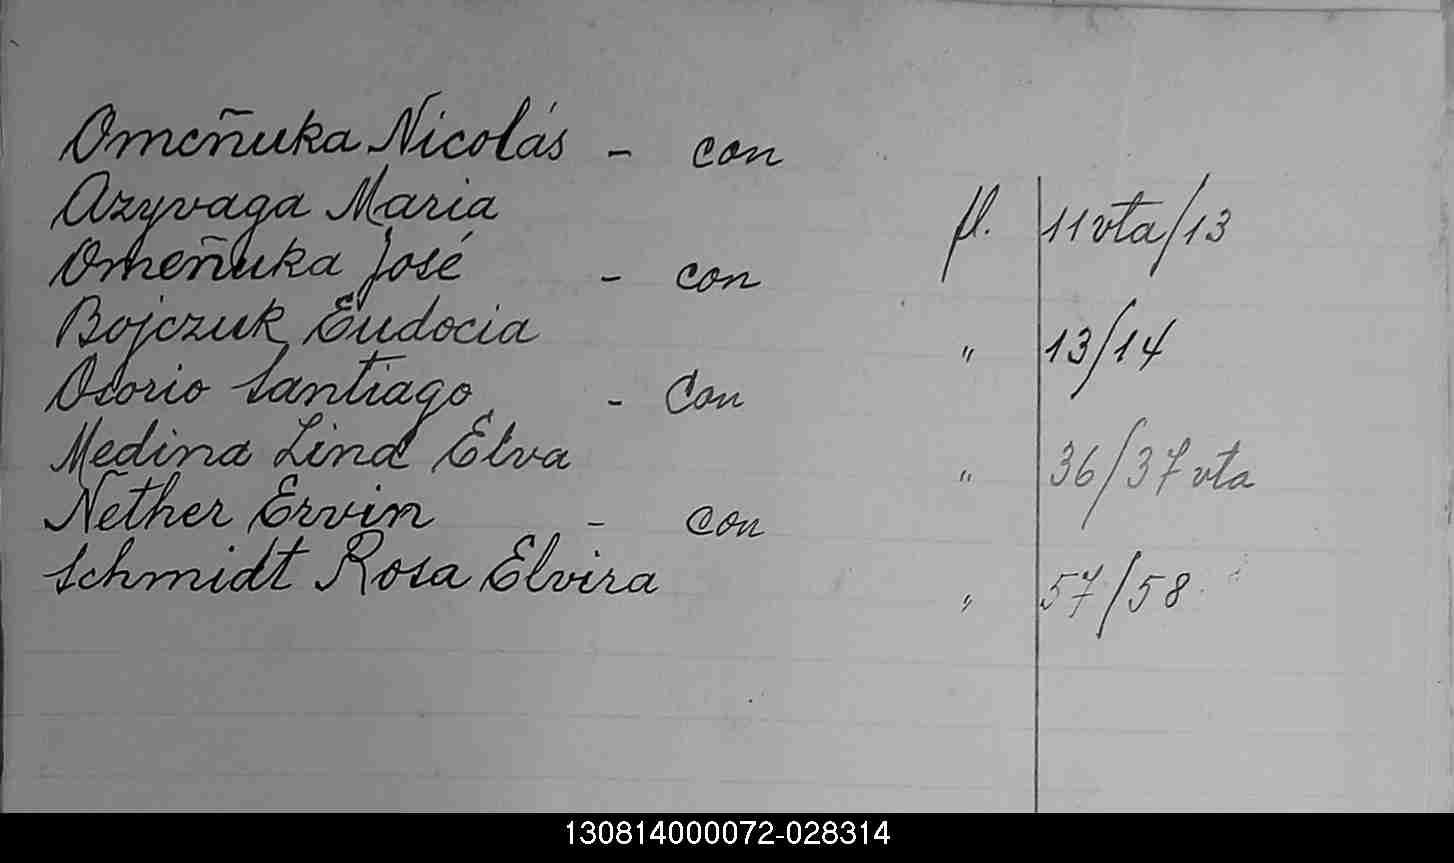 Omeñuka Nicolás - con
Azyvaga Maria fl. 11 vta/13
Omeñuka José - con
Bojczuk Eudocia " 13/14
Osorio Santiago - Con
Medina Lina Elva " 36/37 vta
Nether Ervin - con
Schmidt Rosa Elvira " 57/58
130814000072-028314